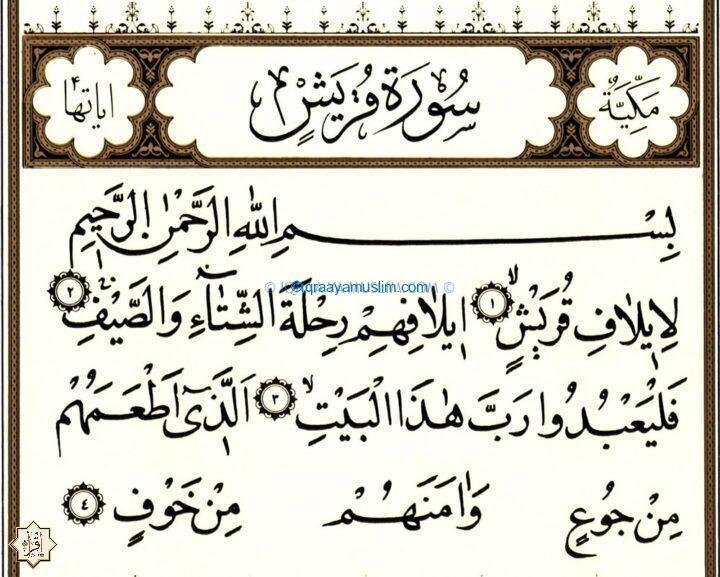 مَكِّيَّةٌ
سُورَةُ قُرَيْشٍ
اٰيَاتُهَا ٤
بِسْمِ اللّٰهِ الرَّحْمٰنِ الرَّحِيمِ
لِا۪يلَافِ قُرَيْشٍۙ ﴿١﴾ ا۪يلَافِهِمْ رِحْلَةَ الشِّتَٓاءِ وَالصَّيْفِۚ ﴿٢﴾
© Iqraayamuslim.com ©
فَلْيَعْبُدُوا رَبَّ هٰذَا الْبَيْتِۙ ﴿٣﴾ اَلَّذ۪ٓي اَطْعَمَهُمْ
مِنْ جُوعٍ وَاٰمَنَهُمْ مِنْ خَوْفٍ ﴿٤﴾